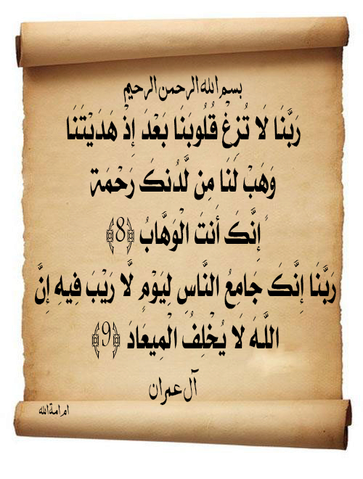 بسم الله الرحمن الرحيم
رَبَّنَا لَا تُزِغْ قُلُوبَنَا بَعْدَ إِذْ هَدَيْتَنَا
وَهَبْ لَنَا مِن لَّدُنكَ رَحْمَة
إِنَّكَ أَنتَ الْوَهَّابُ ﴿8﴾
رَبَّنَا إِنَّكَ جَامِعُ النَّاسِ لِيَوْمٍ لَّا رَيْبَ فِيهِ إِنَّ
اللَّهَ لَا يُخْلِفُ الْمِيعَادَ ﴿9﴾
آل عمران
ام امة الله